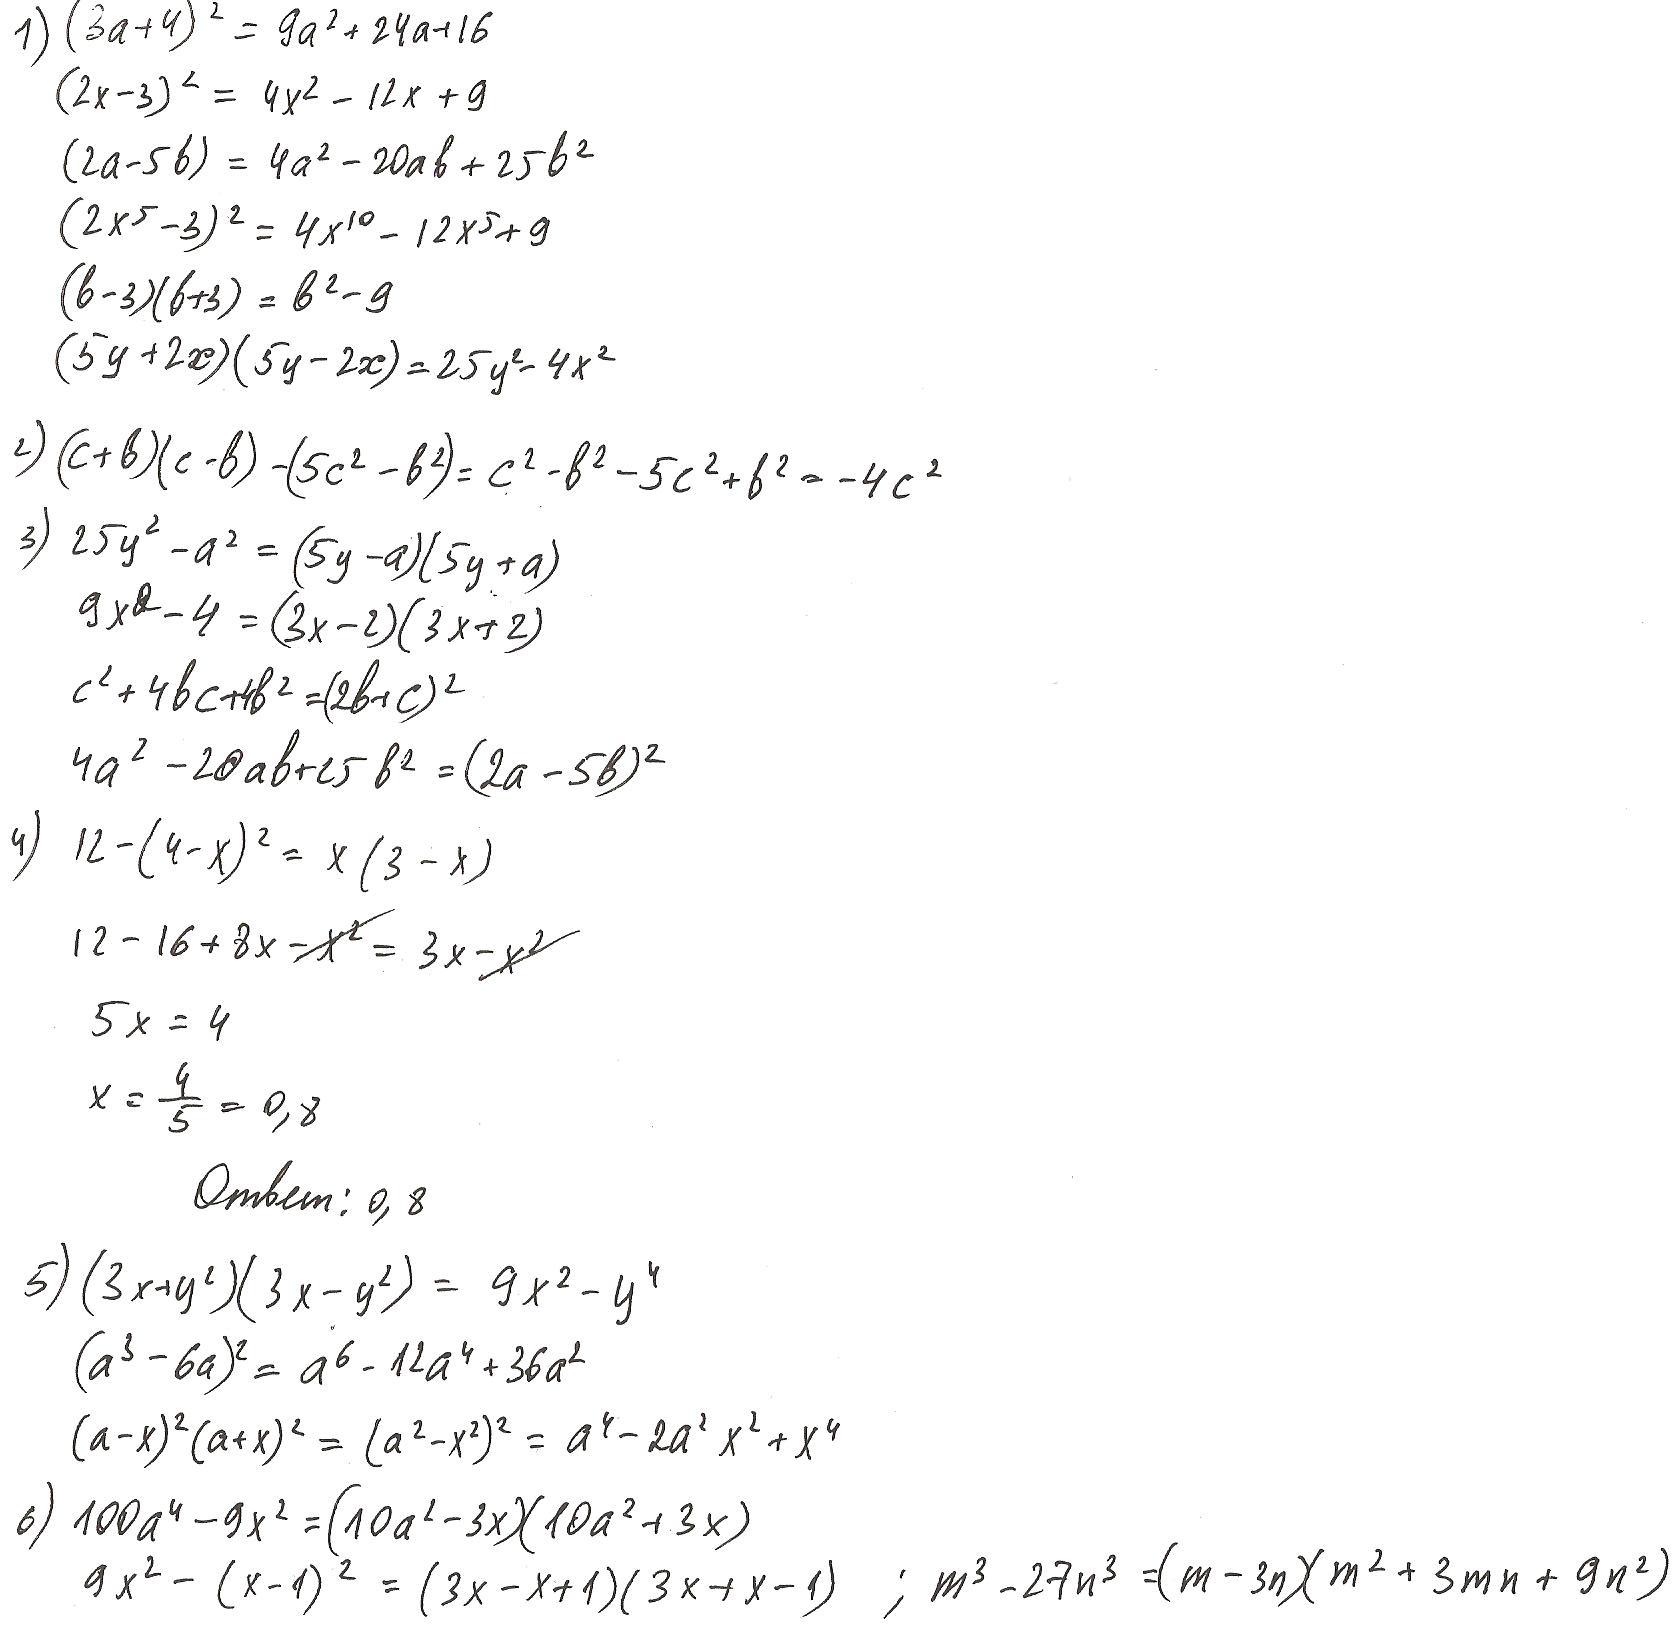 1) (3a+4)² = 9a² + 24a+16
(2x-3)² = 4x² - 12x + 9
(2a-5b) = 4a² - 20ab + 25b²
(2x⁵ - 3)² = 4x¹⁰ - 12x⁵ + 9
(b-3)(b+3) = b² - 9
(5y+2x)(5y-2x) = 25y² - 4x²
2) (c+b)(c-b) - (5c² - b²) = c² - b² - 5c² + b² = -4c²
3) 25y² - a² = (5y-a)(5y+a)
9x² - 4 = (3x-2)(3x+2)
c² + 4bc+4b² = (2b+c)²
4a² - 20ab+25b² = (2a-5b)²
4) 12-(4-x)² = x(3-x)
12-16+8x-x² = 3x-x²
5x = 4
x = 4/5 = 0,8
Ответ: 0,8
5) (3x+y²)(3x-y²) = 9x² - y⁴
(a³ - 6a)² = a⁶ - 12a⁴ + 36a²
(a-x)²(a+x)² = (a²-x²)² = a⁴ - 2a²x² + x⁴
6) 100a⁴ - 9x² = (10a² - 3x)(10a² + 3x)
9x² - (x-1)² = (3x-x+1)(3x+x-1) ; m³ - 27n³ = (m-3n)(m² + 3mn + 9n²)